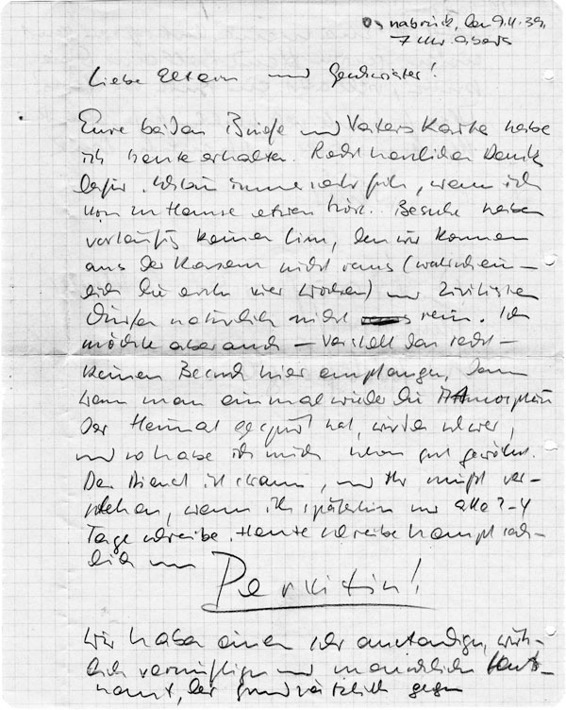 Osnabrück, den 9.11.39,
7 Uhr abends
Liebe Eltern und Geschwister!
Eure beiden Briefe und Vaters Karte habe
ich heute erhalten. Recht herzlichen Dank
dafür. Ich bin immer sehr froh, wenn ich
von zu Hause etwas höre. Besuche haben
vorläufig keinen Sinn, denn wir können
aus der Kaserne nicht raus (wahrschein-
lich die ersten vier Wochen) und Zivilisten
dürfen natürlich nicht rein. Ich
möchte aber auch – versteht das recht –
keinen Besuch hier empfangen, denn
wenn man einmal wieder die Atmosphäre
der Heimat gespürt hat, wird es schwer,
und so habe ich mich schon gut gewöhnt.
Der Dienst ist stramm, und Ihr müßt ver-
stehen, wenn ich späterhin nur alle 2-4
Tage schreibe. Heute schreibe hauptsäch-
lich um
Pervitin!
Wir haben einen sehr anständigen, wirk-
lich vernünftigen und menschlichen Leut-
nant, der grundsätzlich gegen